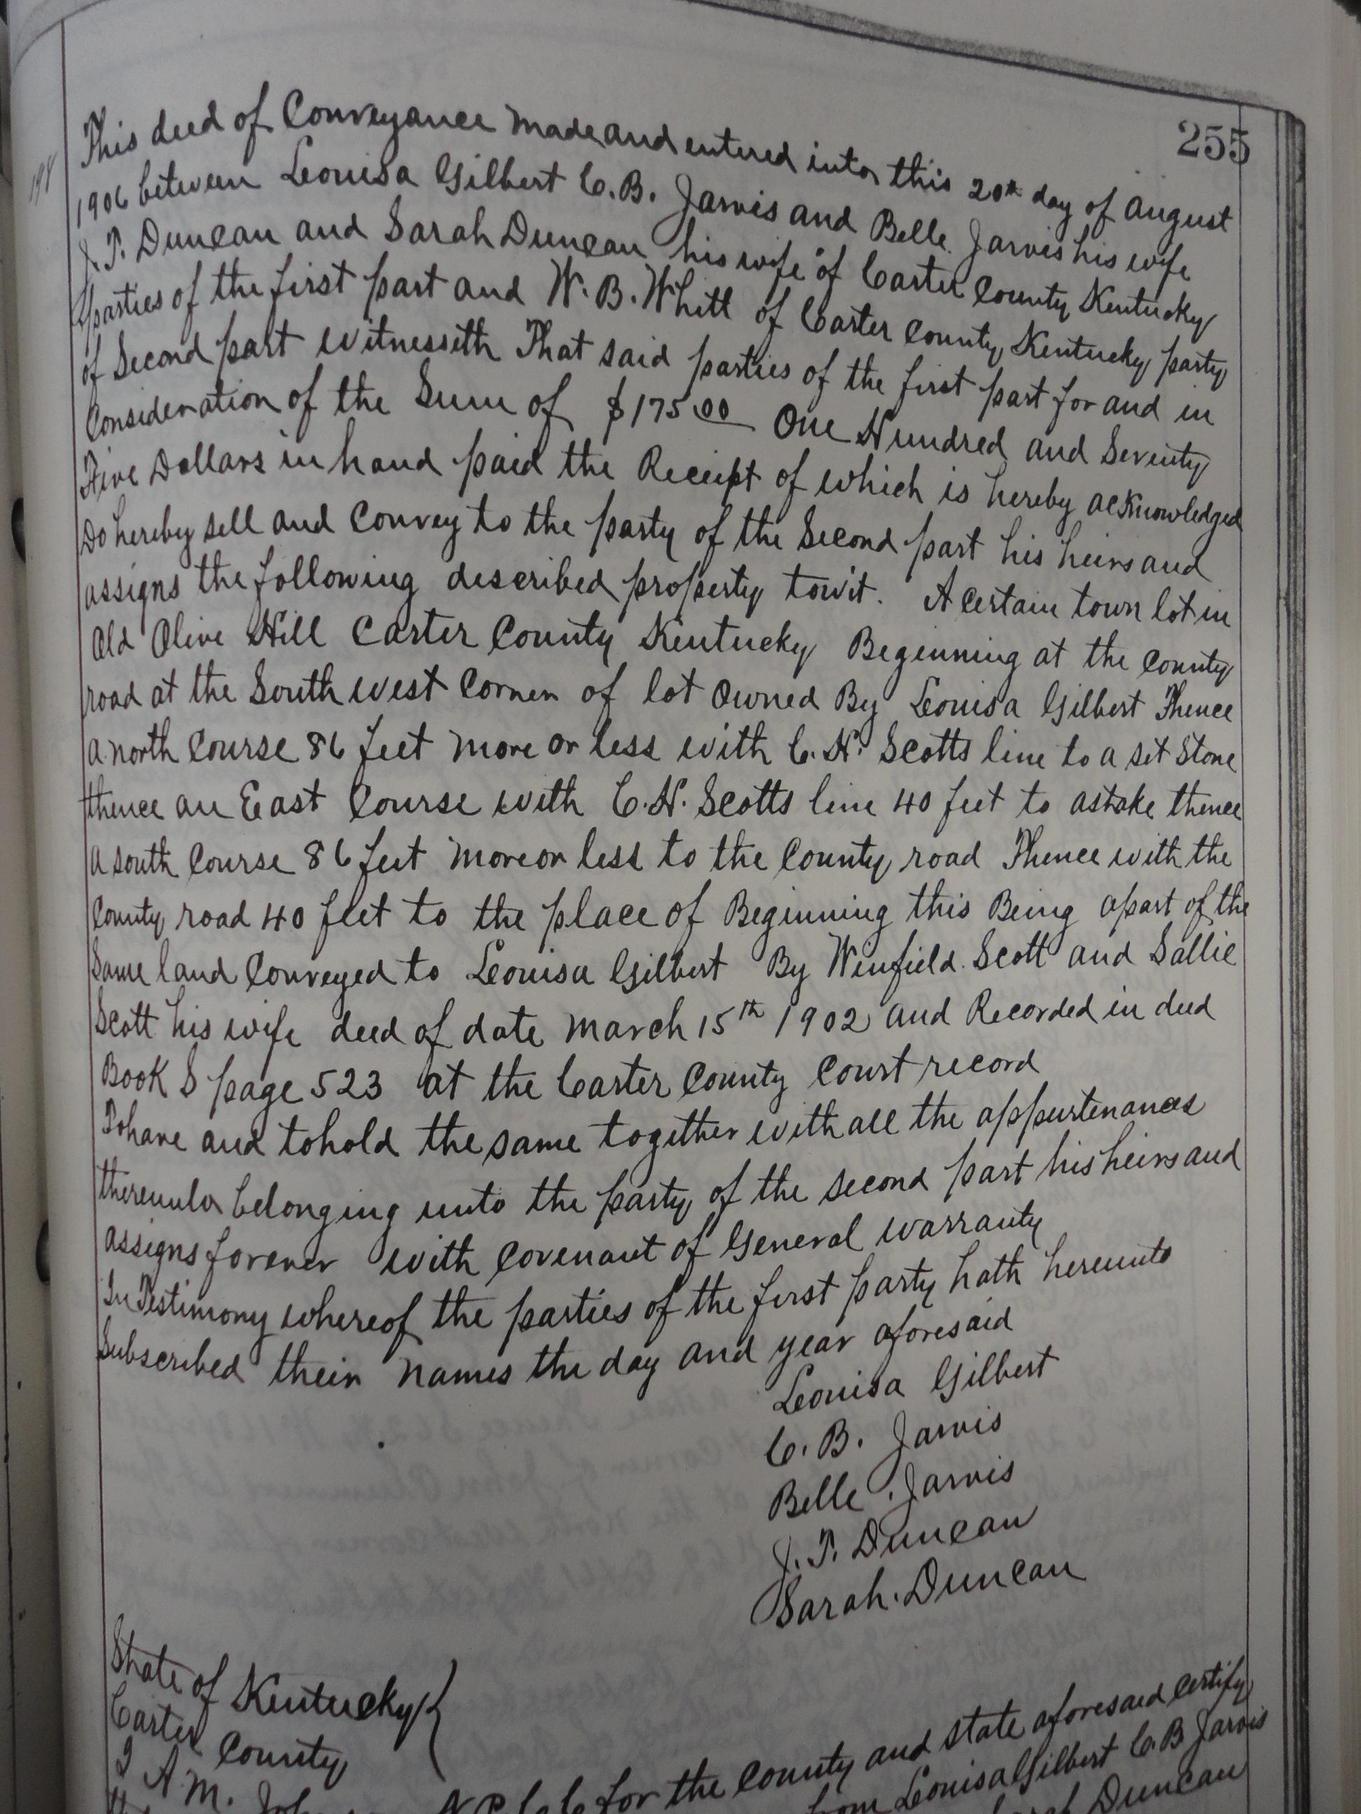 255
This deed of Conveyance made and entered into this 20th day of August
1906 between Louisa Gilbert C. B. Jarvis and Belle Jarvis his wife
J. T. Duncan and Sarah Duncan his wife of Carter County Kentucky
parties of the first part and W. B. Whitt of Carter County Kentucky party
of Second part Witnesseth That said parties of the first part for and in
Consideration of the Sum of $175.00 One Hundred and Seventy
Five Dollars in hand paid the Receipt of which is hereby acknowledged
Do hereby sell and Convey to the party of the Second part his heirs and
assigns the following described property towit. A Certain town lot in
Old Olive Hill Carter County Kentucky Beginning at the County
road at the South west Corner of lot Owned By Louisa Gilbert Thence
a north Course 86 feet more or less with C. N. Scotts line to a set Stone
thence an East Course with C. N. Scotts line 40 feet to a stake thence
a south Course 86 feet more or less to the County road Thence with the
County road 40 feet to the place of Beginning this Being a part of the
Same land Conveyed to Louisa Gilbert By Winfield Scott and Sallie
Scott his wife deed of date March 15th 1902 and Recorded in deed
Book S page 523 at the Carter County Court record
To have and to hold the same together with all the appurtenances
thereunto belonging unto the party of the second part his heirs and
assigns forever with Covenant of General warranty
In Testimony whereof the parties of the first party hath hereunto
Subscribed their names the day and year aforesaid
Louisa Gilbert
C. B. Jarvis
Belle Jarvis
J. T. Duncan
Sarah Duncan
State of Kentucky
Carter County
I A. M. for the County and State aforesaid certify
from Louisa Gilbert C. B Jarvis
Sarah Duncan